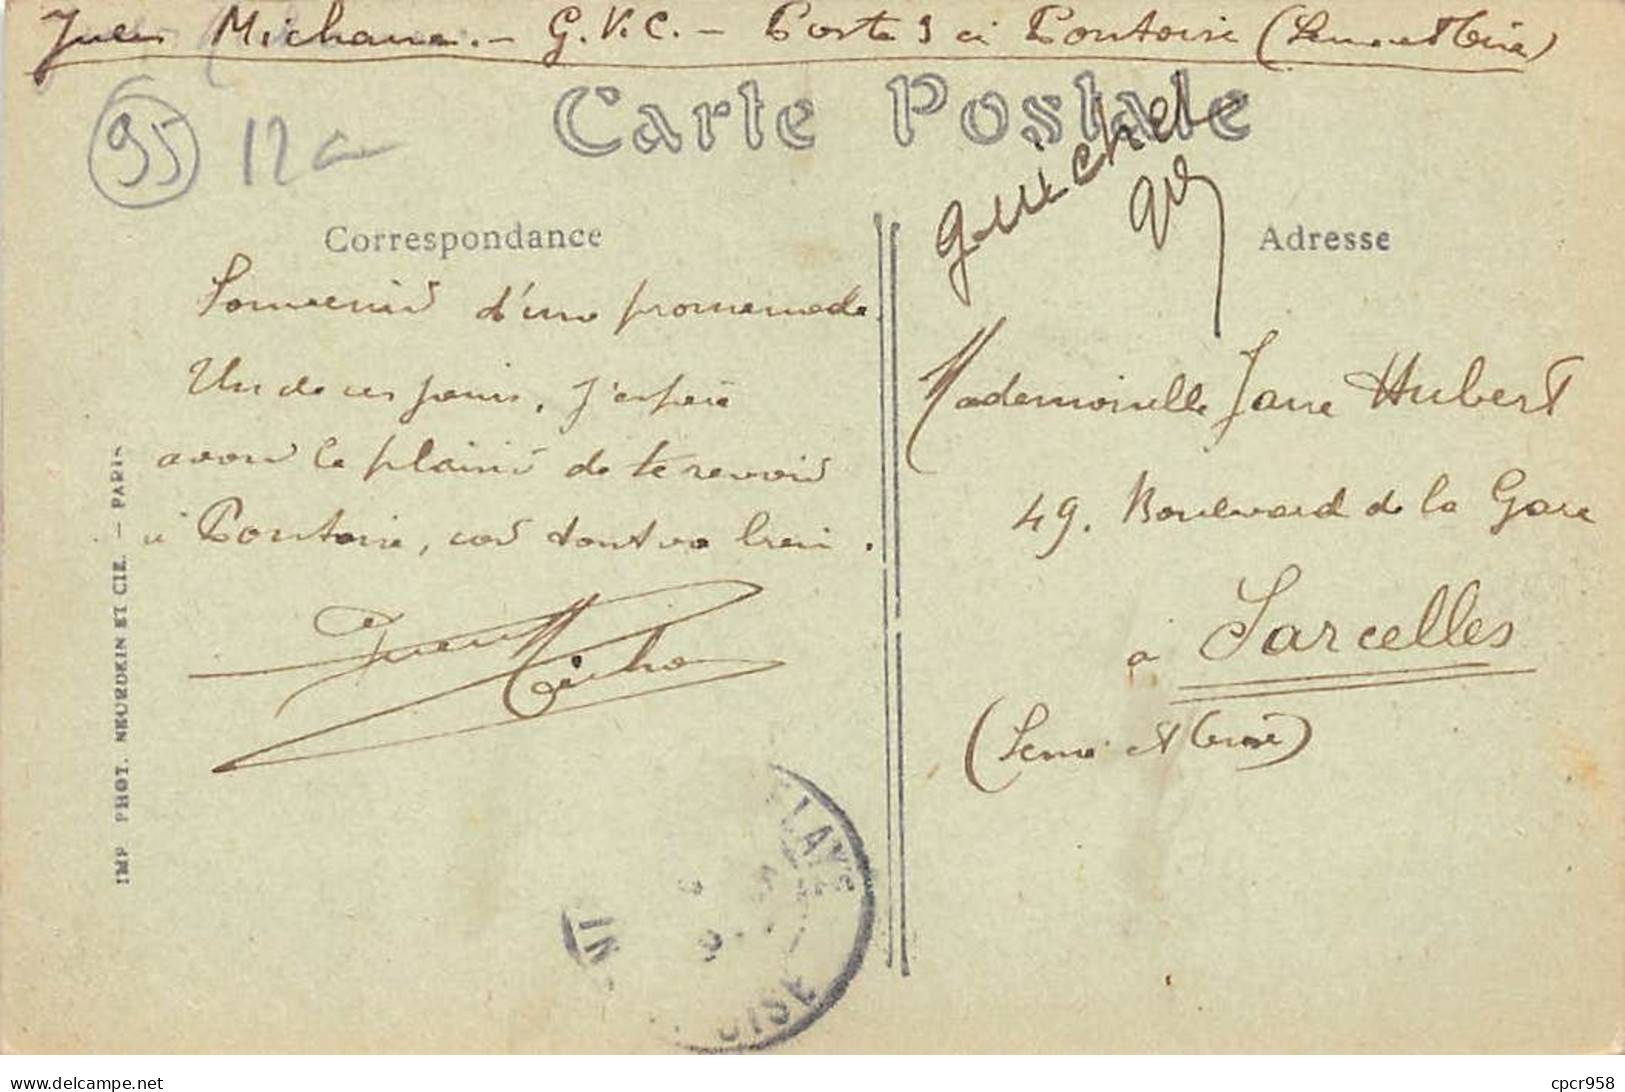 Michaux. - G.V.C. - Poste 3 à Pontoise (Seine et Oise)
Carte Postale
95 12
Guichet
Correspondance
Adresse
Souvenir d'une promenade.
Un de ces jours, j'espère
avoir le plaisir de te revoir
à Pontoise, car tout va bien.
Mademoiselle Jane Hubert
49. Boulevard de la Gare
à Sarcelles
(Seine et Oise)
IMP PHOT. NEURDEIN ET CIE. — PARIS
LAYE
OISE
cpcr958